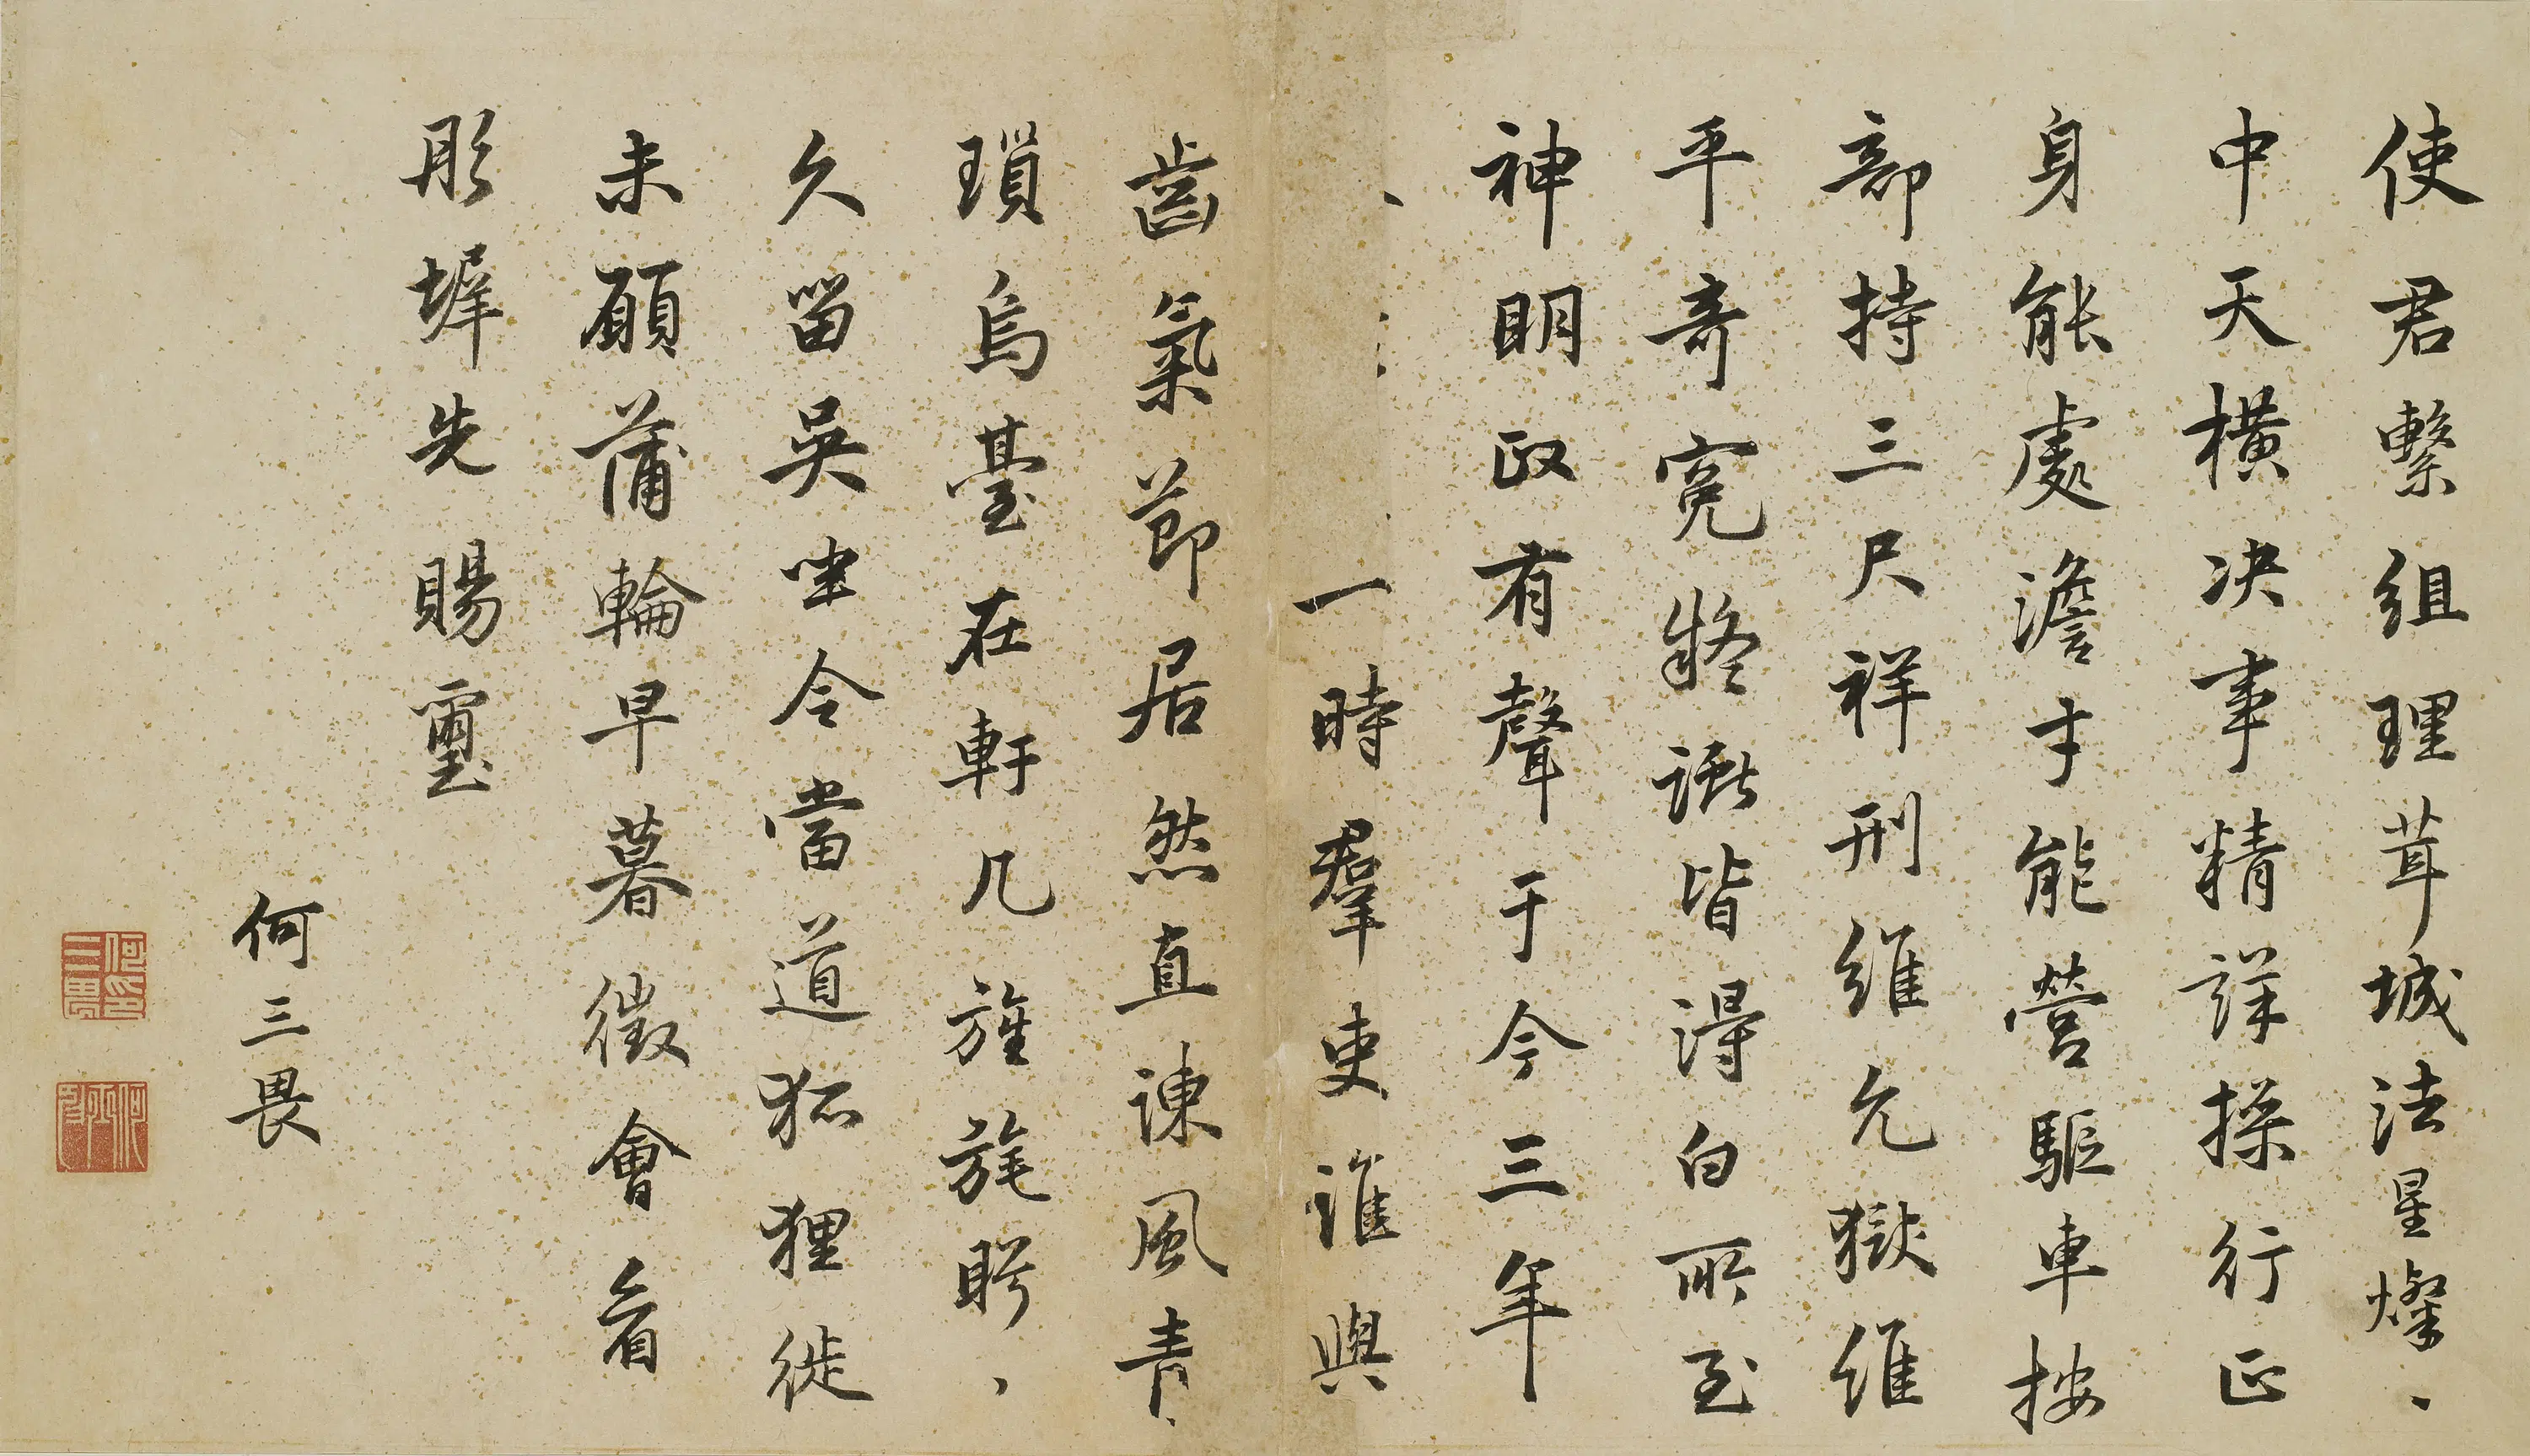 使君繫組理茸城法星燦、
中天橫決事精詳操行正
身能處澹才能營驅車按
部持三尺祥刑維允獄維
平奇冤疑讞皆得白所至
神明政有聲于今三年
一時羣吏誰與
齒氣節居然直諫風青、
瑣烏臺在軒几旌旄盱、
久留吳中今當道狐狸徙
未願蒲輪早暮徵會看
彤墀先賜璽
何三畏